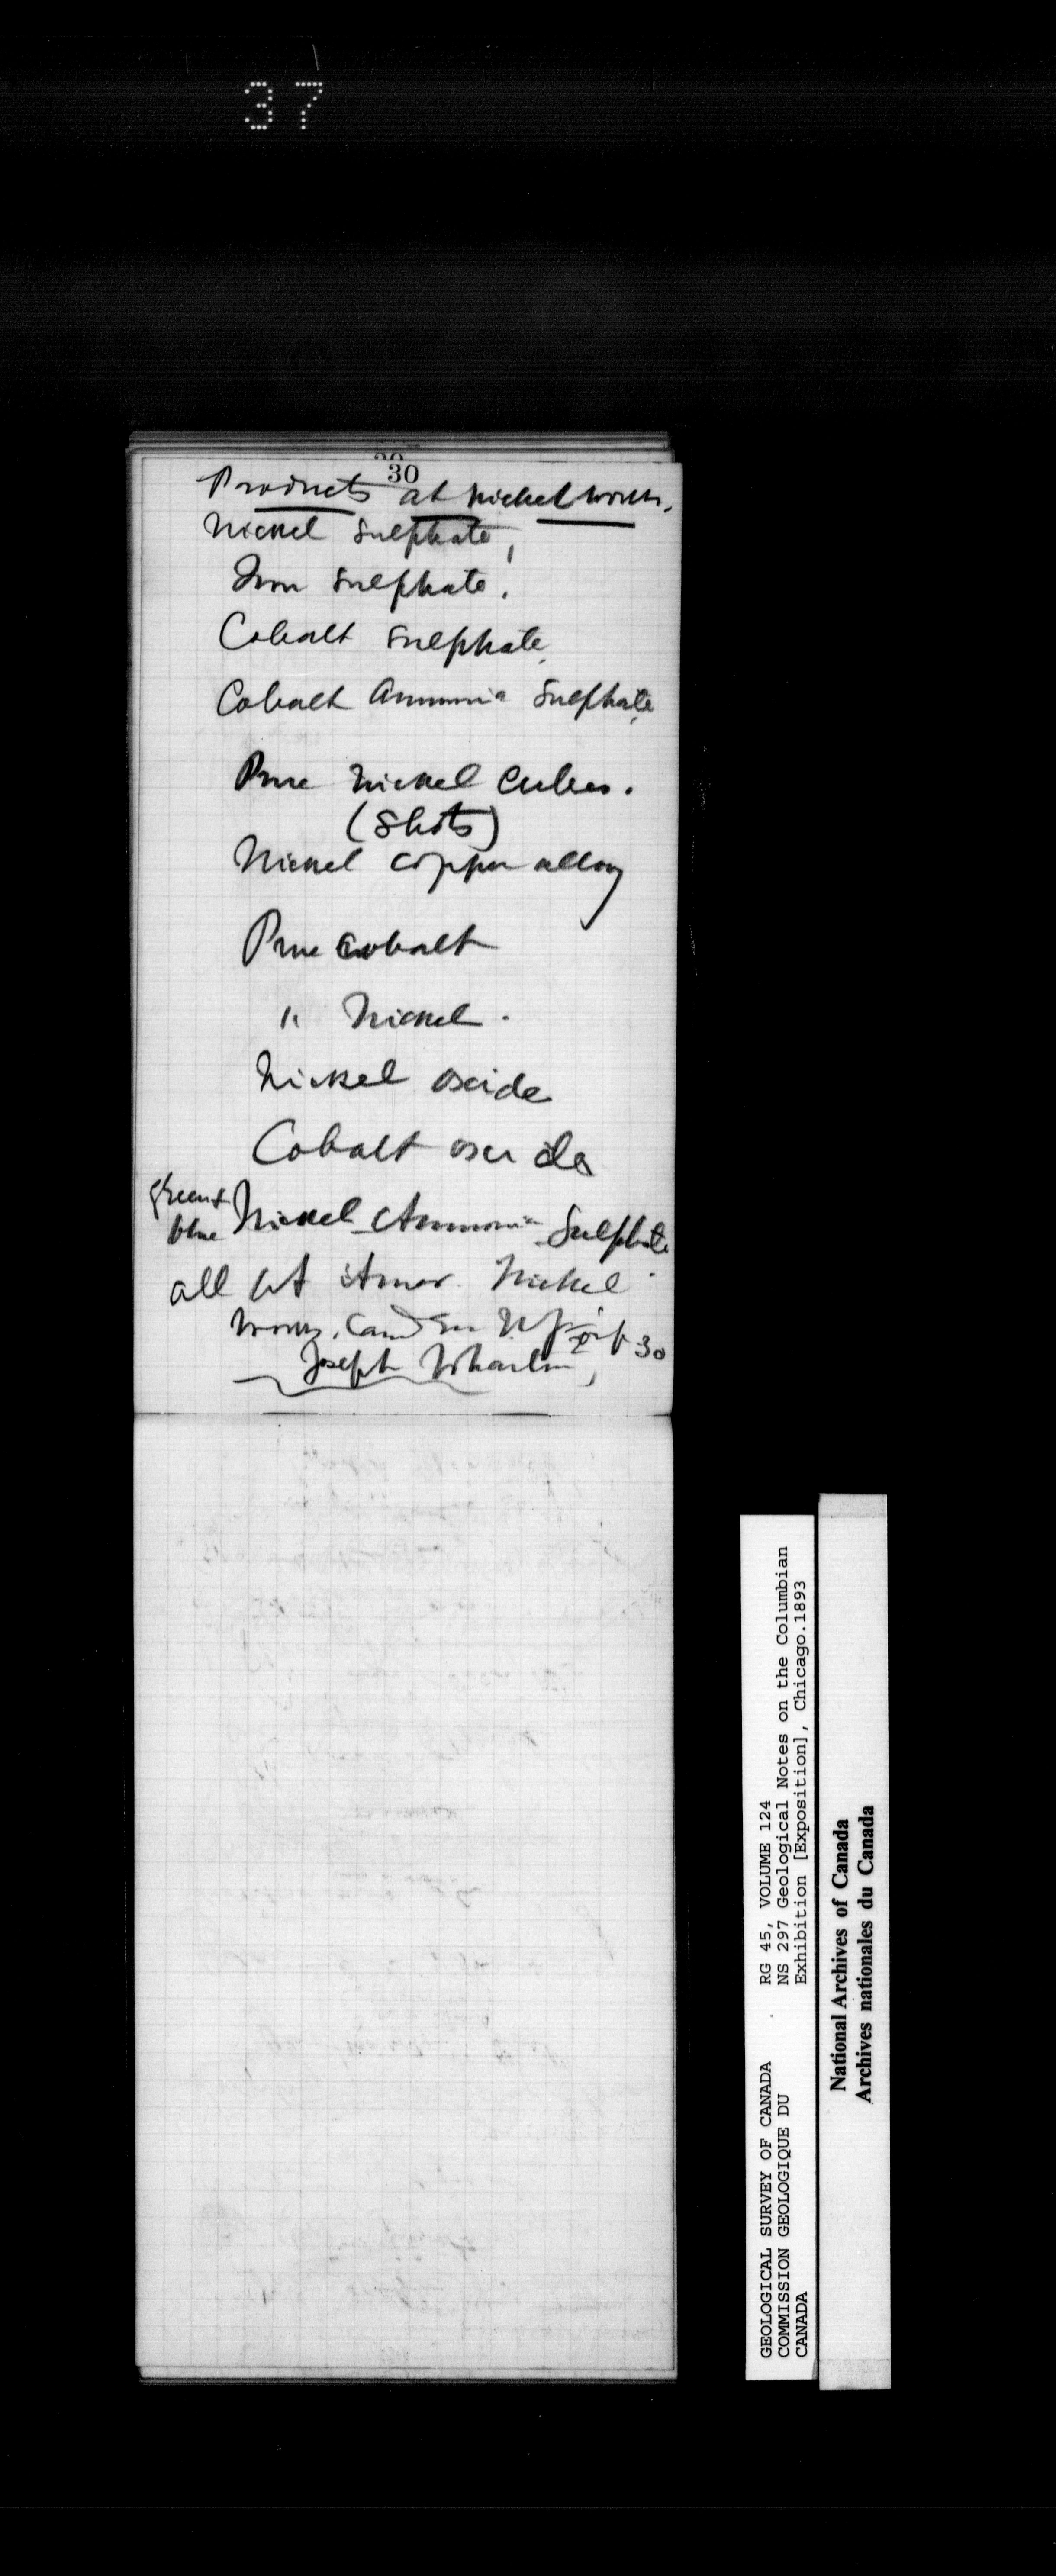 37
30
Products at Nickel Works.
Nickel Sulphate,
Iron Sulphate.
Cobalt Sulphate
Cobalt Ammonia Sulphate
Pure Nickel Cubes.
(Shots)
Nickel Copper alloy
Pure Cobalt
" Nickel.
Nickel oxide
Cobalt oxide
green &
blue Nickel Ammonia Sulphate
all at Amer. Nickel
Works, Camden N.J. 30
Joseph Wharton,
GEOLOGICAL SURVEY OF CANADA
COMMISSION GEOLOGIQUE DU
CANADA
RG 45, VOLUME 124
NS 297 Geological Notes on the Columbian
Exhibition [Exposition], Chicago.1893
National Archives of Canada
Archives nationales du Canada